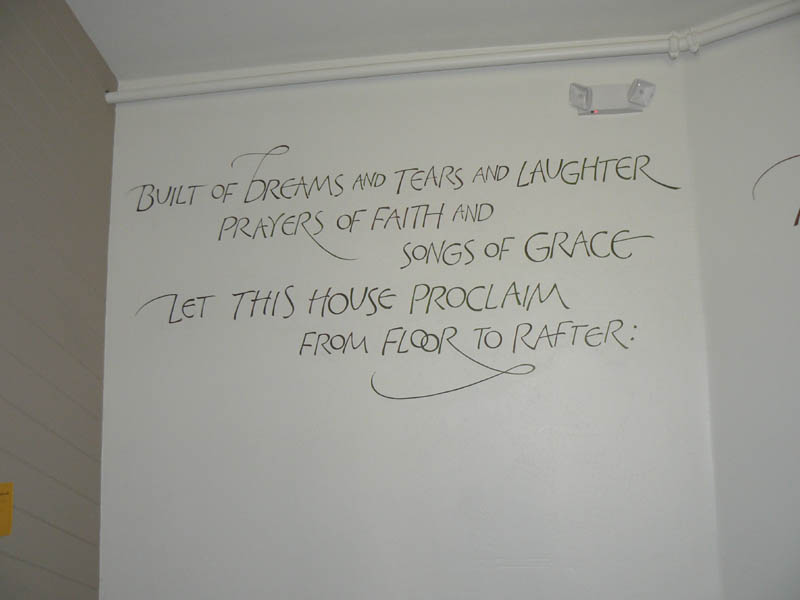 BUILT OF DREAMS AND TEARS AND LAUGHTER
PRAYERS OF FAITH AND
SONGS OF GRACE
LET THIS HOUSE PROCLAIM
FROM FLOOR TO RAFTER: